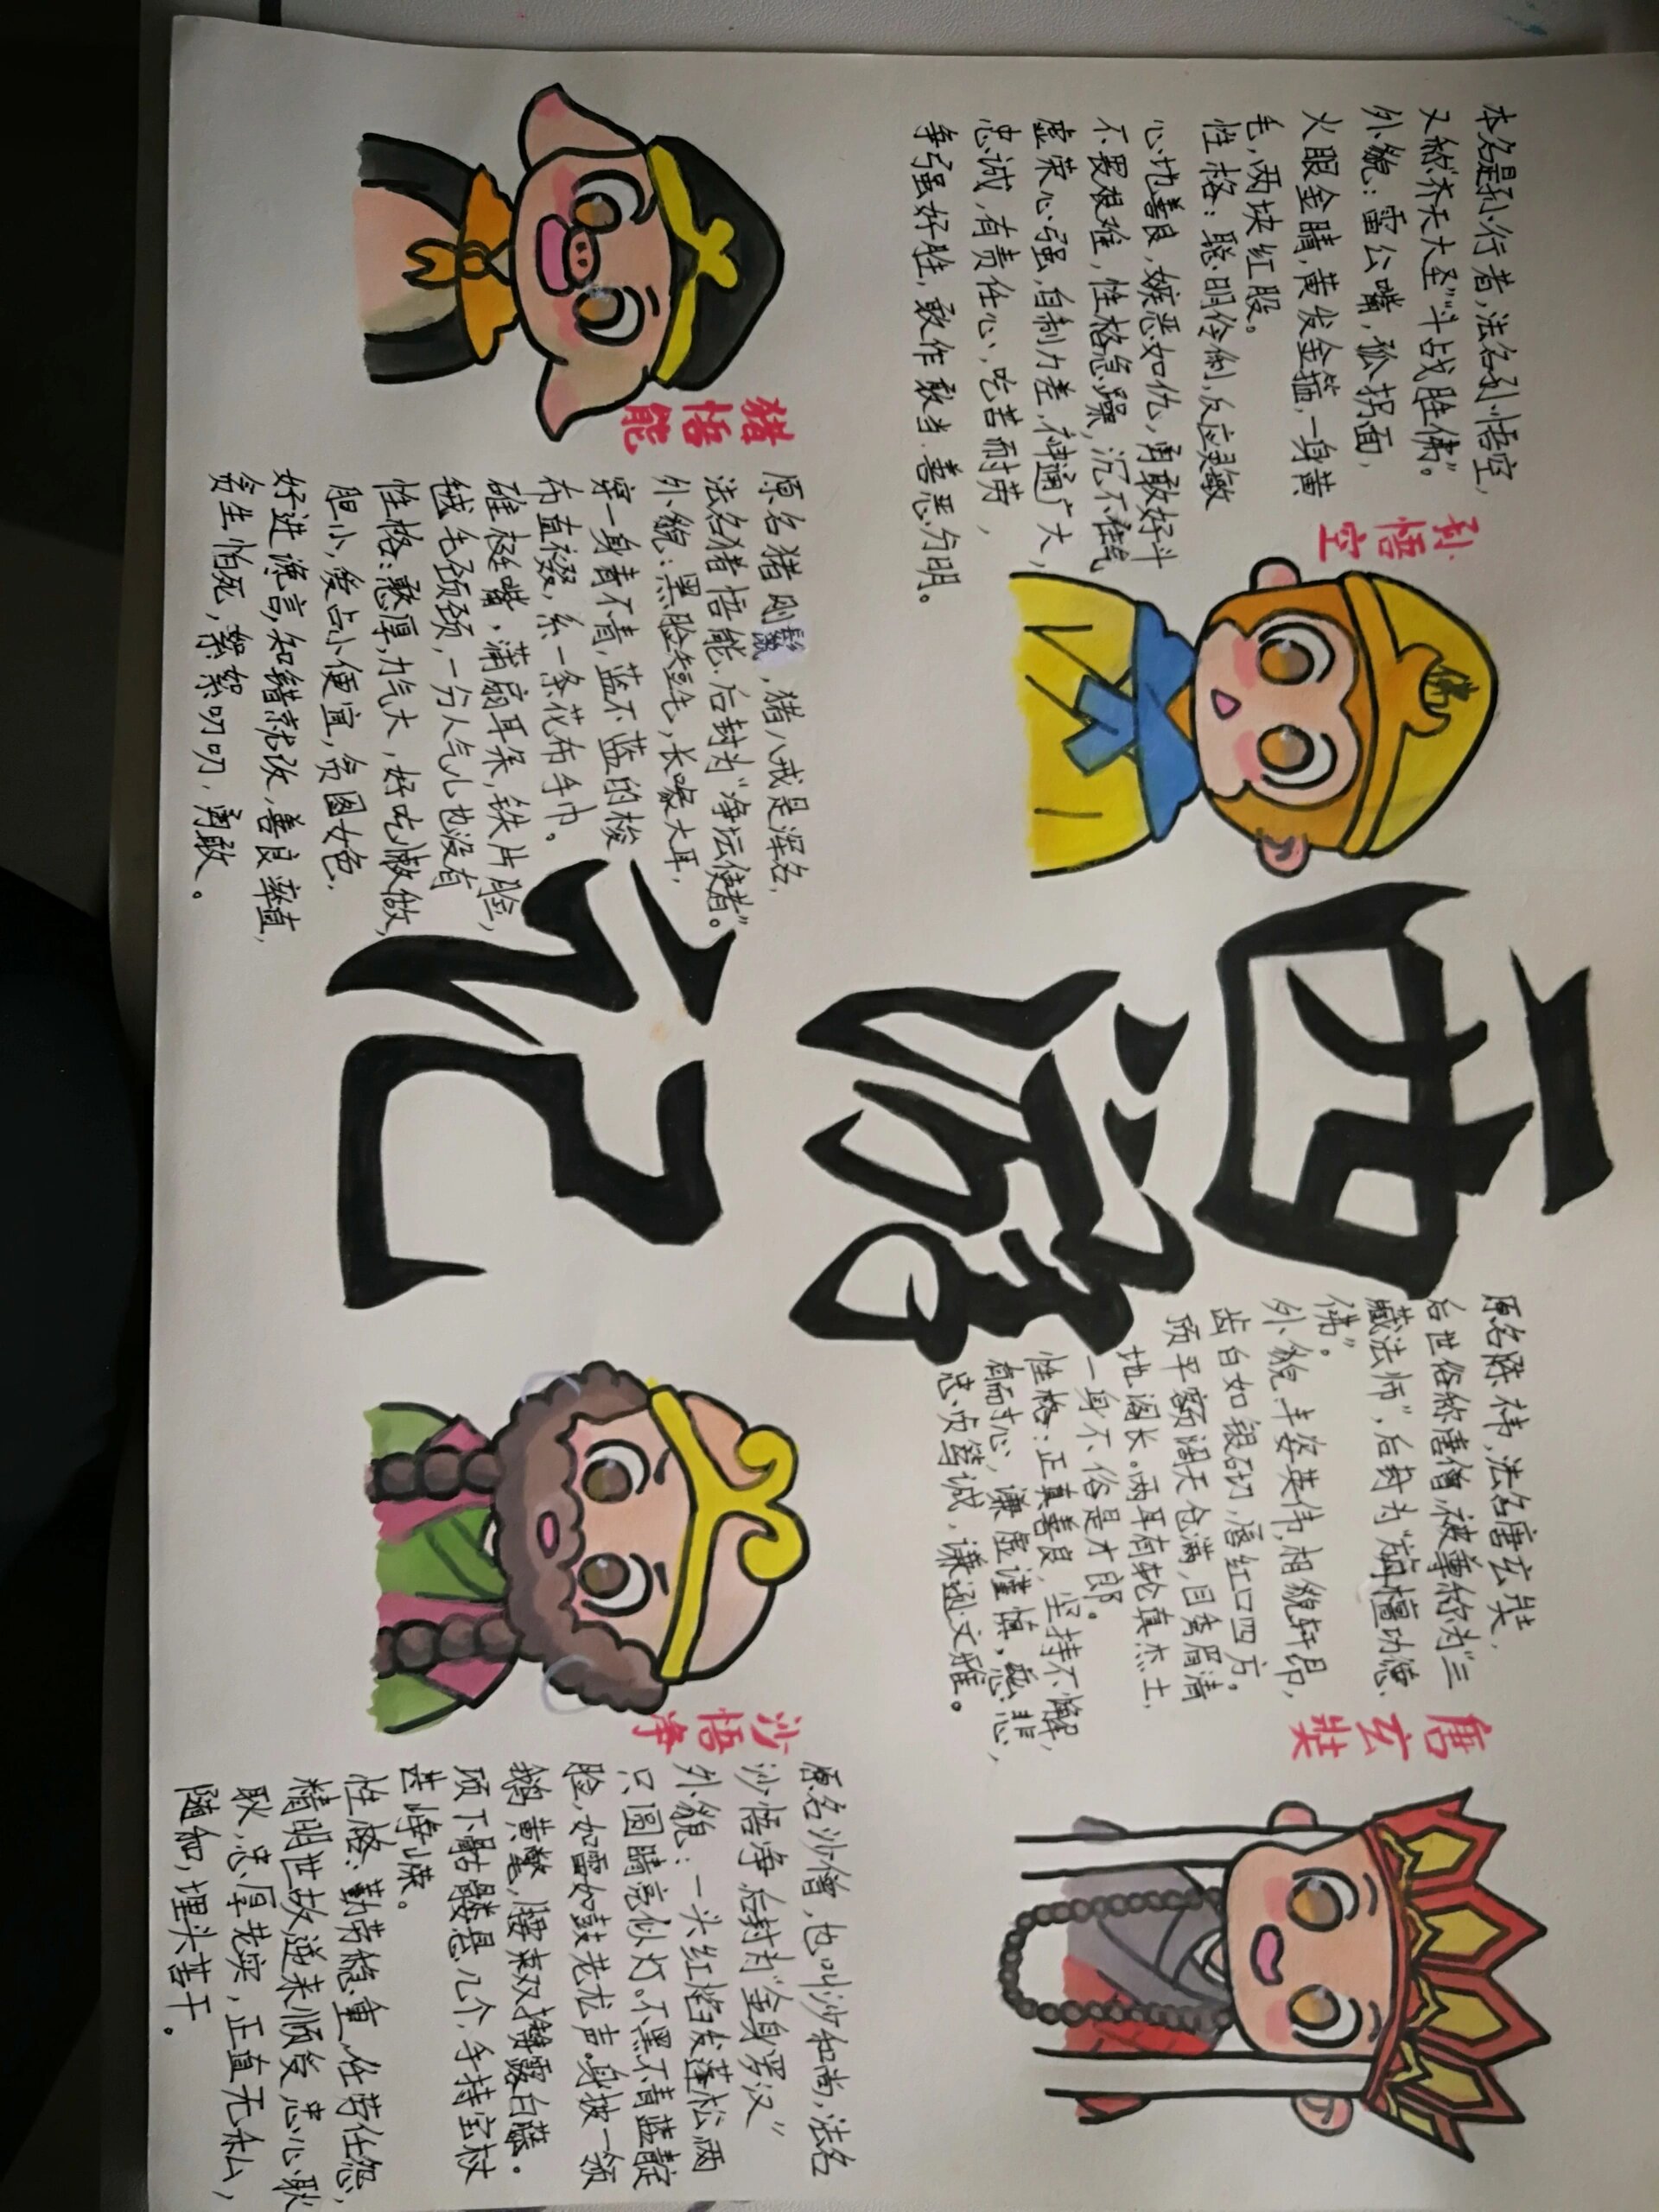 西游记
孙悟空
本名是孙行者,法名孙悟空,
又称“齐天大圣”“斗占战胜佛”。
外貌:雷公嘴,孤拐面,
火眼金睛,黄发金箍,一身黄
毛,两块红股。
性格:聪明伶俐,反应灵敏
心地善良,嫉恶如仇,勇敢好斗
不畏艰难,性格急躁,沉不住气
虚荣心强,自制力差,神通广大,
忠诚,有责任心,吃苦耐劳,
争强好胜,敢作敢当.善恶分明。
唐玄奘
原名陈祎,法名唐玄奘,
后世俗称唐僧被尊称为“三
藏法师”,后封为“旃檀功德
佛”。
外貌:丰姿英伟,相貌轩昂,
齿白如银砌,唇红口四方。
顶平额阔天仓满,目秀眉清
地阁长。两耳有轮真杰士,
一身不俗是才郎。
性格:正真善良,坚持不懈,
有耐心,谦虚谨慎,慈悲,
忠贞笃诚,谦逊文雅。
猪悟能
原名猪刚鬣,猪八戒是浑名,
法名猪悟能.后封为“净坛使者”。
外貌:黑脸短毛,长喙大耳,
穿一身青不青,蓝不蓝的梭
布直裰,系一条花布手巾。
碓梃嘴,蒲扇耳朵,铁片脸,
毧毛颈颈,一分人气儿也没有
性格:憨厚,力气大,好吃懒做,
胆小,爱占小便宜,贪图女色,
好进谗言,知错就改,善良率直,
贪生怕死,絮絮叨叨,勇敢。
沙悟净
原名沙僧,也叫沙和尚,法名
沙悟净,后封为“金身罗汉”
外貌:一头红焰发蓬松两
只圆睛亮似灯。不黑不青蓝靛
脸,如雷如鼓老龙声。身披一领
鹅黄氅,腰束双攒露白藤。
项下骷髅悬几个,手持宝杖
甚峥嵘。
性格:勤劳稳重,任劳任怨,
精明世故,逆来顺受,忠心耿
耿,忠厚老实,正直无私,
随和,埋头苦干。